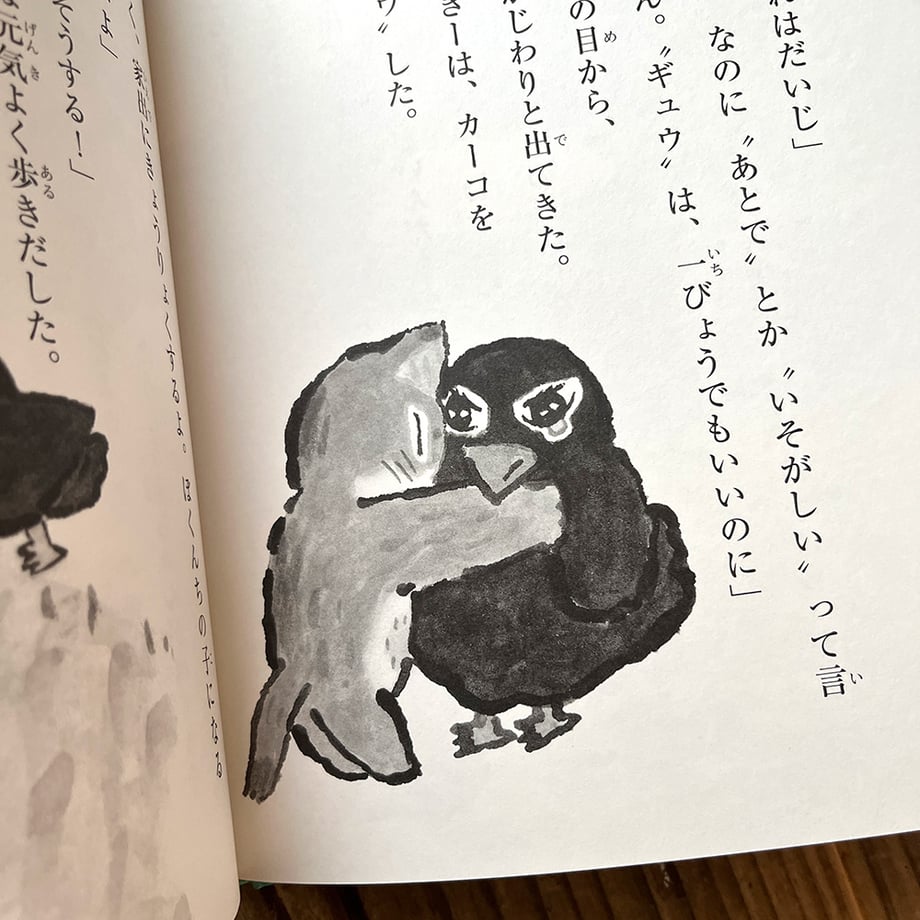 れはだいじ」
なのに〝あとで〟とか〝いそがしい〟って言
ん。〝ギュウ〟は、一びょうでもいいのに」
の目から、
がじわりと出てきた。
きーは、カーコを
ウ〟した。
家出にきょうりょくするよ。ぼくんちの子になる
よ」
そうする！」
元気よく歩きだした。